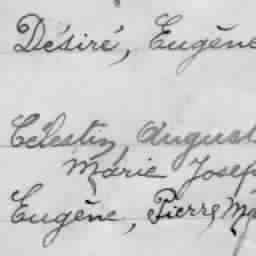 Désiré, Eugène
Célestin, August
Marie Josep
Eugène, Pierre Ma